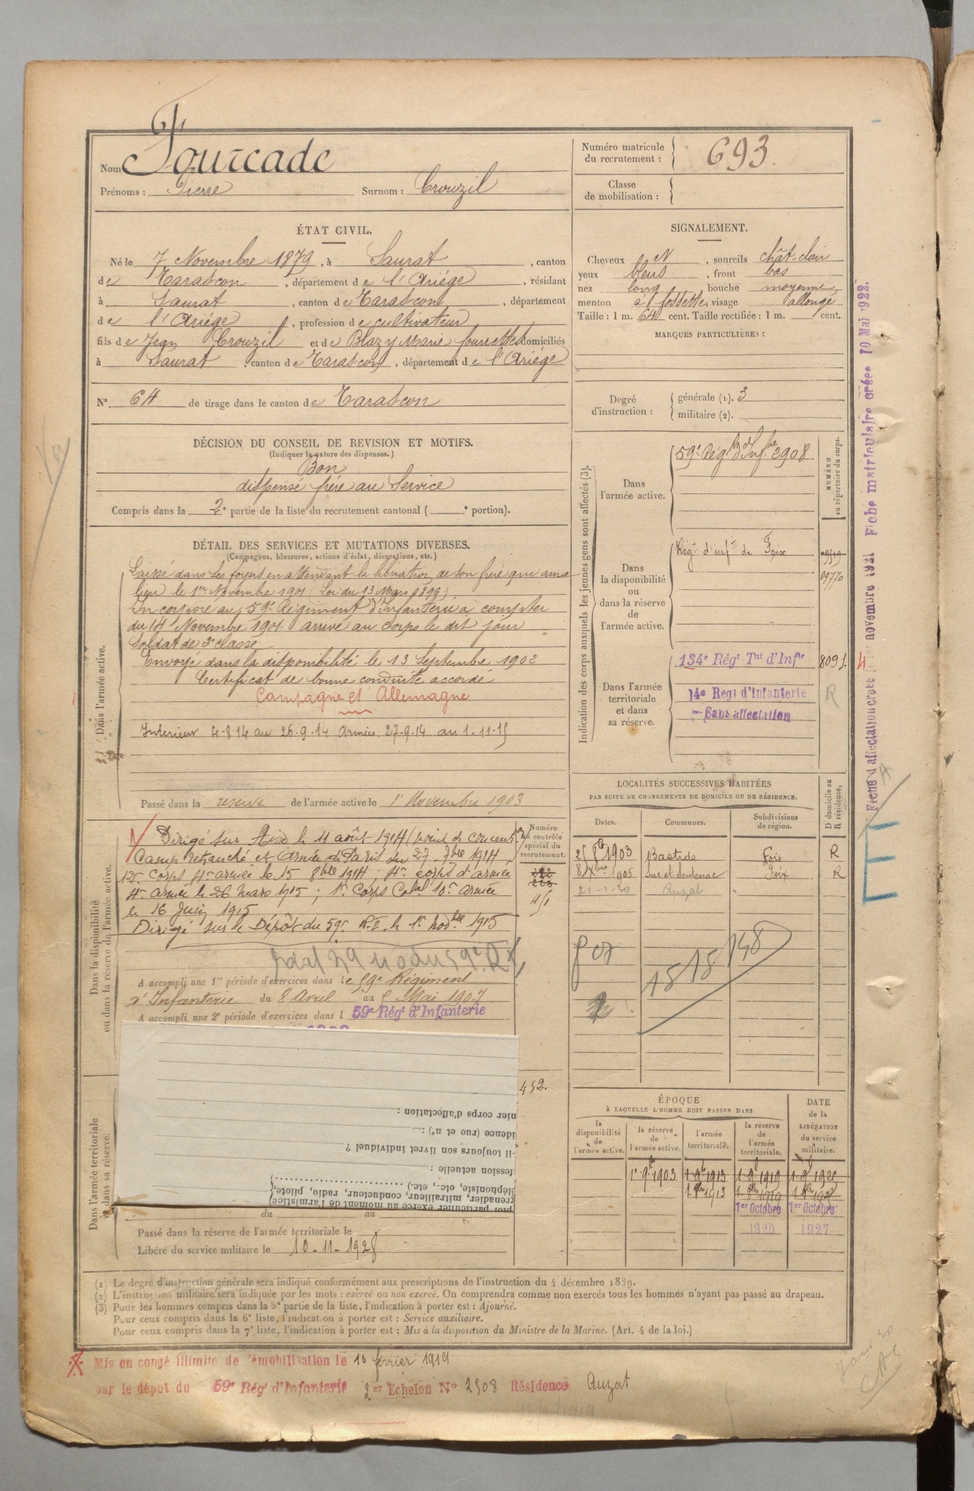 Nom Fourcade
Prénoms : Pierre Surnom : Crouzil
Numéro matricule du recrutement : 693
Classe de mobilisation :
ÉTAT CIVIL.
Né le 7 Novembre 1879, à Saurat, canton
de Tarascon, département de l'Ariège, résidant
à Saurat, canton de Tarascon, département
de l'Ariège, profession de cultivateur
fils de Jean Crouzil et de Blazy Marie domiciliés
à Saurat, canton de Tarascon, département de l'Ariège
N° 64 de tirage dans le canton de Tarascon
SIGNALEMENT.
Cheveux N, sourcils chât. clair
yeux bleus, front bas
nez long, bouche moyenne
menton à fossette, visage allongé
Taille : 1 m. 64 cent. Taille rectifiée : 1 m. cent.
MARQUES PARTICULIÈRES :
Degré d'instruction : générale (1). 3
militaire (2).
DÉCISION DU CONSEIL DE REVISION ET MOTIFS.
(Indiquer la nature des dispenses.)
Bon
dispensé frère au Service
Compris dans la 2e partie de la liste du recrutement cantonal ( e portion).
DÉTAIL DES SERVICES ET MUTATIONS DIVERSES.
(Campagnes, blessures, actions d'éclat, décorations, etc.)
Dans l'armée active.
Laissé dans ses foyers en attendant la libération de son frère qui aura
lieu le 1er Novembre 1901 (Loi du 13 Mars 1899)
Incorporé au 59e Régiment d'Infanterie à compter
du 14 Novembre 1901 arrivé au corps le dit jour
Soldat de 2e classe
Envoyé dans la disponibilité le 13 Septembre 1902
Certificat de bonne conduite accordé
Campagne et Allemagne
Intérieur 4-8-14 au 26-9-14 Armée 27-9-14 au 1-11-15
Passé dans la réserve de l'armée active le 1er Novembre 1903
Indication des corps auxquels les jeunes gens sont affectés (3).
NUMÉRO au répertoire du corps.
Dans l'armée active.
59e Régt d'Infie 2908
Dans la disponibilité ou dans la réserve de l'armée active.
Régt d'infie de Foix
Dans l'armée territoriale et dans sa réserve.
134e Régt Tal d'Infie 8091
14e Regt d'Infanterie R
Sans affectation
LOCALITÉS SUCCESSIVES HABITÉES
PAR SUITE DE CHANGEMENTS DE DOMICILE OU DE RÉSIDENCE.
Dates. Communes. Subdivisions de région. D domicile ou R résidence.
1903 Bastide Foix R
1905 Suc et Sentenac Foix R
21-1-20 Auzat
1818
Dans la disponibilité ou dans la réserve de l'armée active.
Numéro au contrôle spécial du recrutement.
Dirigé sur le 11 août 1914
Camp retranché et Armée de Paris du 27 7bre 1914
12e Corps 4e armée le 15 8bre 1914 ; 4e corps d'armée
4e armée le 26 mars 1915 ; 1er Corps Cal 10e Armée
le 16 Juin 1915
Dirigé sur le Dépôt du 59e R.I. le 1er Novbre 1915
A accompli une 1re période d'exercices dans le 59e Régiment
d'Infanterie du 8 Avril au 5 Mai 1907
A accompli une 2e période d'exercices dans l 59e Régt d'Infanterie
452.
nier corps d'affectation :
idence (rue et n°) :
-il toujours son livret individuel ?
fession actuelle :
éléphoniste, etc., etc.)
grenadier, mitrailleur, conducteur, radio, pilote,
ploi particulier exercé au moment de l'armistice
Dans l'armée territoriale et dans sa réserve.
du au
Passé dans la réserve de l'armée territoriale le
Libéré du service militaire le 10-11-1928
ÉPOQUE
À LAQUELLE L'HOMME DOIT PASSER DANS
la disponibilité de l'armée active.
la réserve de l'armée active.
l'armée territoriale.
la réserve de l'armée territoriale.
DATE de la LIBÉRATION du service militaire.
1er 9bre 1903 1 9bre 1913 1 9bre 1919
1er Octobre 1er Octobre
1920 1927
(1) Le degré d'instruction générale sera indiqué conformément aux prescriptions de l'instruction du 4 décembre 1889.
(2) L'instruction militaire sera indiquée par les mots : exercé ou non exercé. On comprendra comme non exercés tous les hommes n'ayant pas passé au drapeau.
(3) Pour les hommes compris dans la 5e partie de la liste, l'indication à porter est : Ajourné.
Pour ceux compris dans la 6e liste, l'indication à porter est : Service auxiliaire.
Pour ceux compris dans la 7e liste, l'indication à porter est : Mis à la disposition du Ministre de la Marine. (Art. 4 de la loi.)
Mis en congé illimité de démobilisation le 16 février 1919
par le dépôt du 59e Régt d'Infanterie 2er Echelon N° 2908 Résidence Auzat
Fiche d'affectation créée novembre 1921 Fiche matriculaire créée 10 Mai 1922.